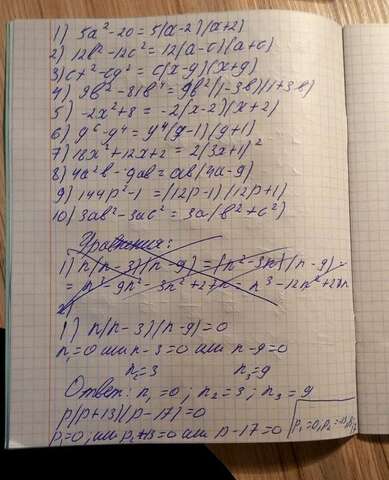 1) 5a² - 20 = 5(a-2)(a+2)
2) 12b² - 12c² = 12(a-c)(a+c)
3) cx² - cy² = c(x-y)(x+y)
4) 9b² - 81b⁴ = 9b²(1-3b)(1+3b)
5) -2x² + 8 = -2(x-2)(x+2)
6) y⁶ - y⁴ = y⁴(y-1)(y+1)
7) 18x² + 12x + 2 = 2(3x+1)²
8) 4a²b - 9ab = ab(4a-9)
9) 144p² - 1 = (12p-1)(12p+1)
10) 3ab² - 3ac² = 3a(b²+c²)
Уравнения:
1) n(n-3)(n-9) = (n²-3n)(n-9) =
= n³ - 9n² - 3n² + 27n = n³ - 12n² + 27n
1) n(n-3)(n-9) = 0
n₁=0 или n-3=0 или n-9=0
n₂=3 n₃=9
Ответ: n₁=0; n₂=3; n₃=9
p(p+13)(p-17)=0
p₁=0, или p+13=0 или p-17=0